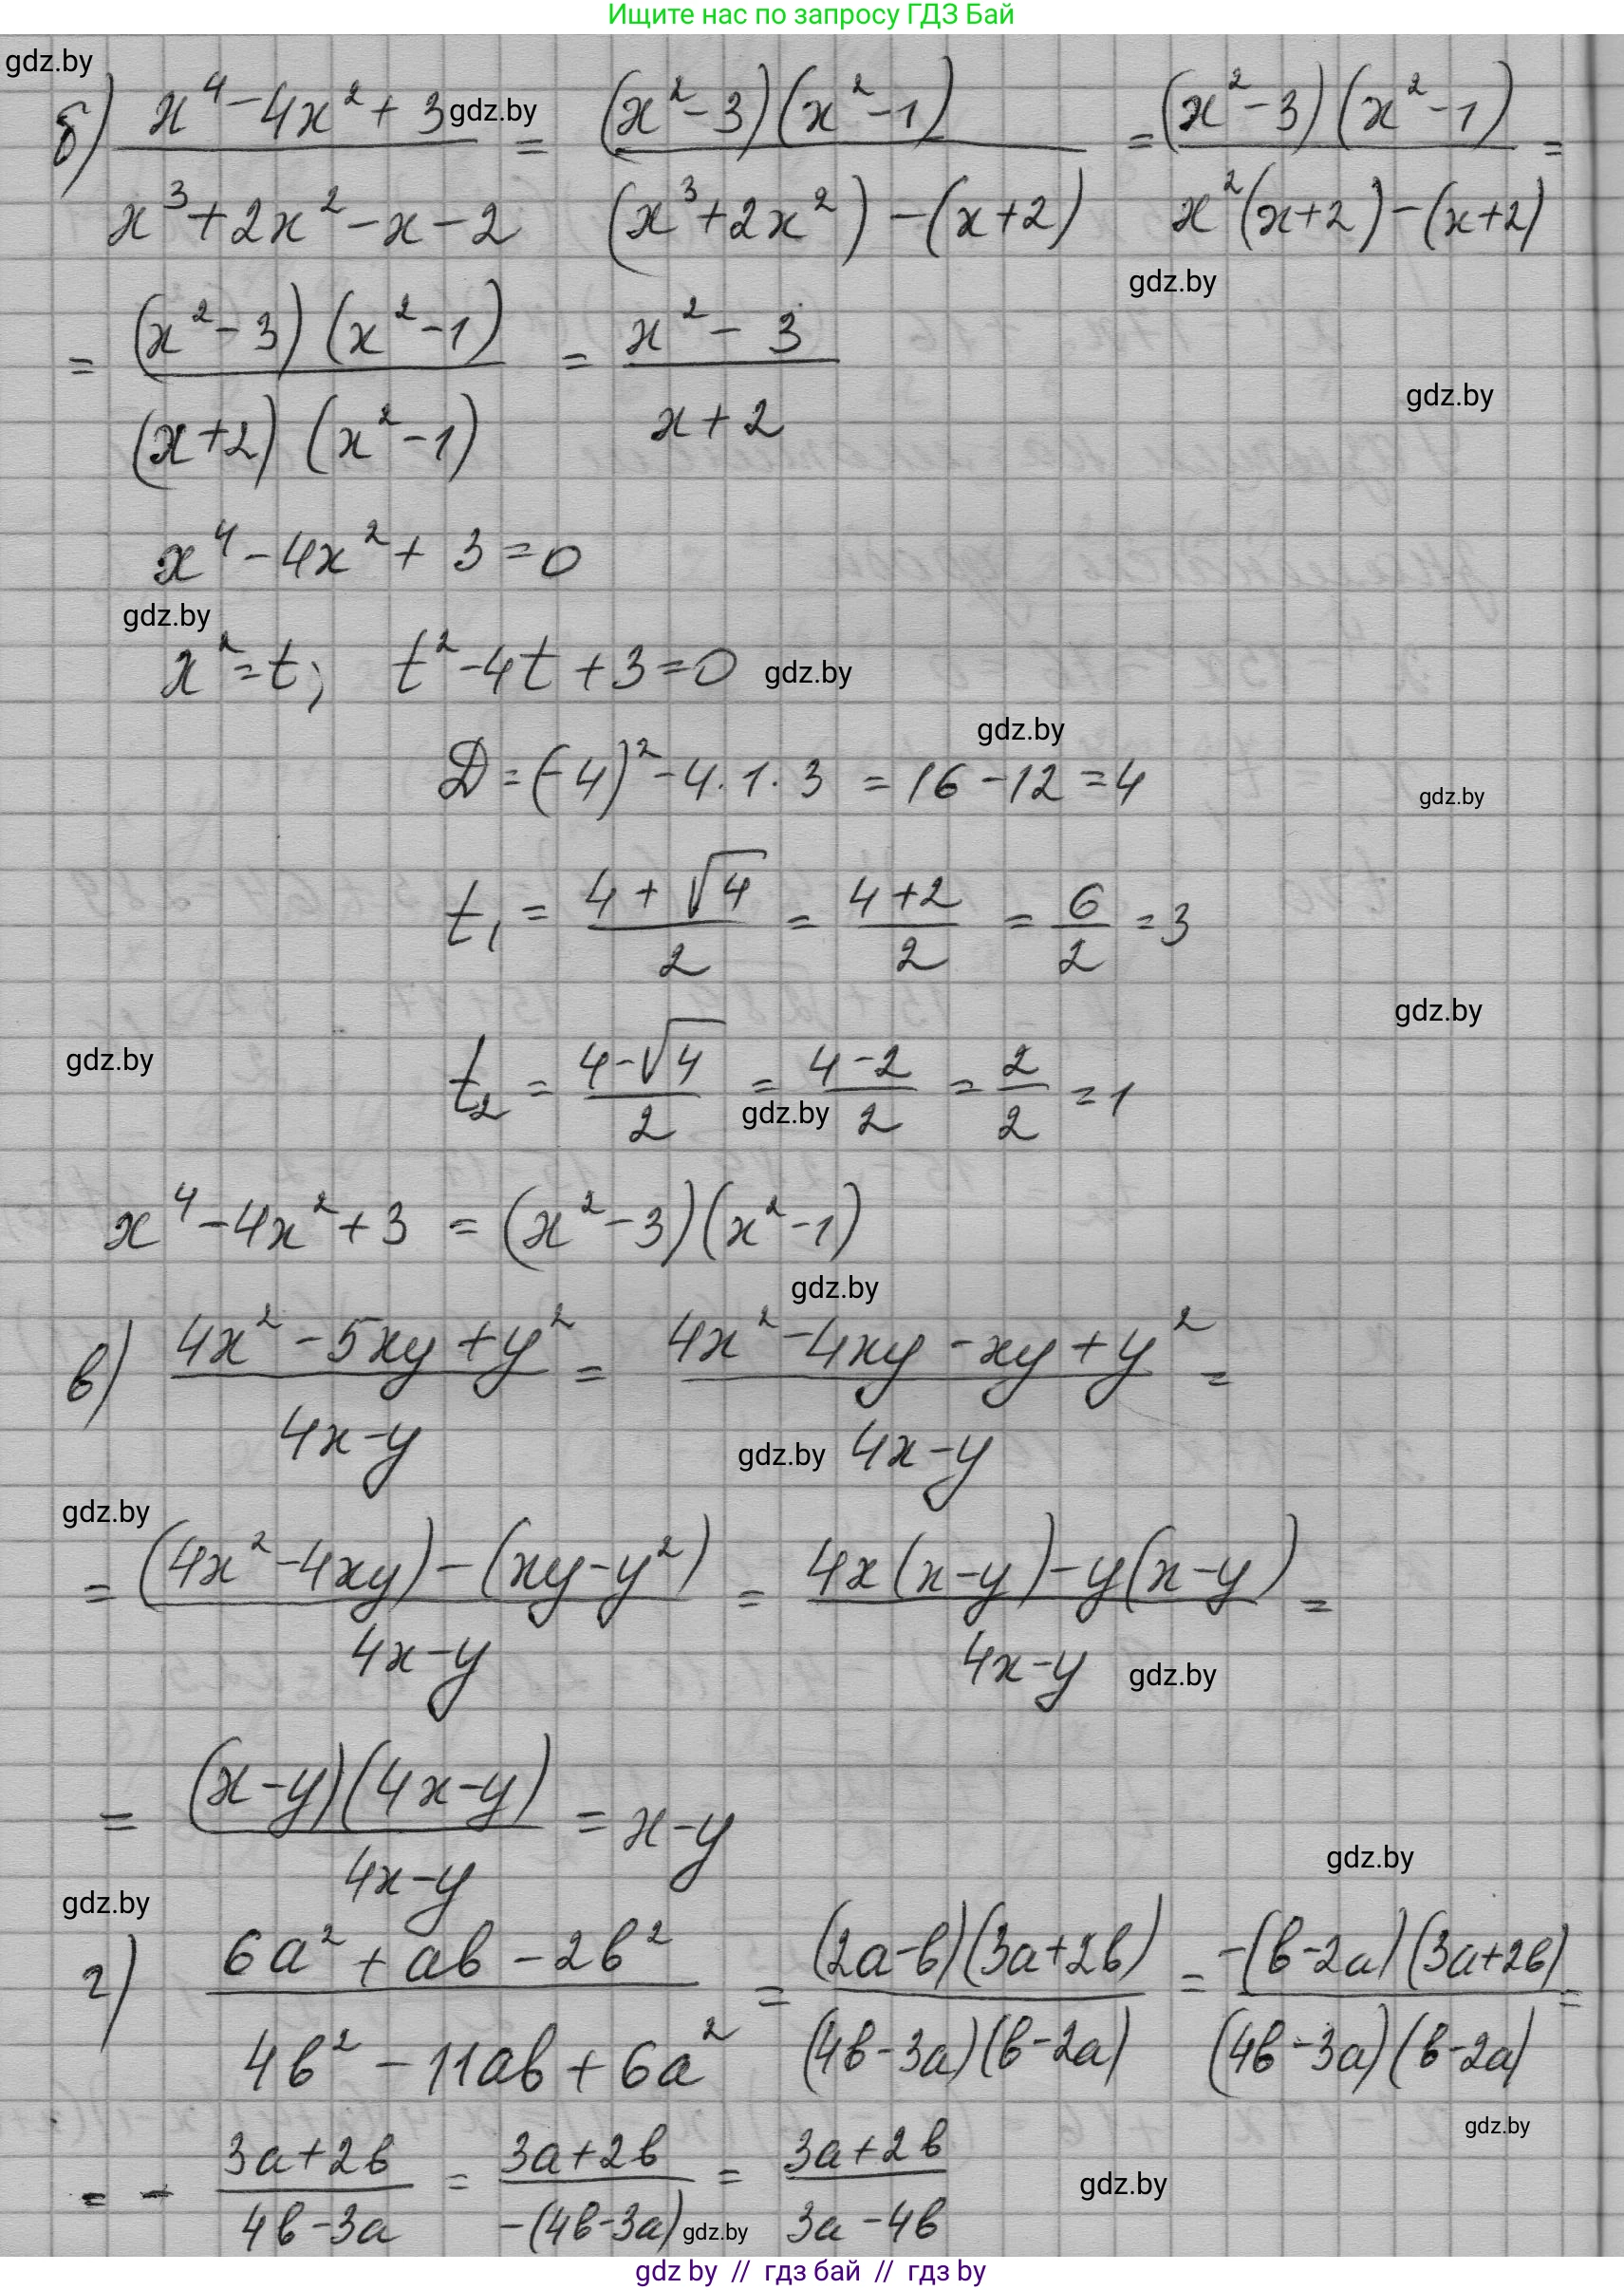 Ищите нас по запросу ГДЗ Бай
gdz.by
б) (x⁴ - 4x² + 3)/(x³ + 2x² - x - 2) = ((x² - 3)(x² - 1))/((x³ + 2x²) - (x + 2)) = ((x² - 3)(x² - 1))/(x²(x + 2) - (x + 2)) =
gdz.by
gdz.by
= ((x² - 3)(x² - 1))/((x + 2)(x² - 1)) = (x² - 3)/(x + 2)
gdz.by
x⁴ - 4x² + 3 = 0
gdz.by
x² = t; t² - 4t + 3 = 0
gdz.by
gdz.by
D = (-4)² - 4 · 1 · 3 = 16 - 12 = 4
gdz.by
t₁ = (4 + √4)/2 = (4 + 2)/2 = 6/2 = 3
gdz.by
gdz.by
t₂ = (4 - √4)/2 = (4 - 2)/2 = 2/2 = 1
gdz.by
x⁴ - 4x² + 3 = (x² - 3)(x² - 1)
gdz.by
в) (4x² - 5xy + y²)/(4x - y) = (4x² - 4xy - xy + y²)/(4x - y) =
gdz.by
gdz.by
= ((4x² - 4xy) - (xy - y²))/(4x - y) = (4x(x - y) - y(x - y))/(4x - y) =
gdz.by
= ((x - y)(4x - y))/(4x - y) = x - y
gdz.by
gdz.by
г) (6a² + ab - 2b²)/(4b² - 11ab + 6a²) = ((2a - b)(3a + 2b))/((4b - 3a)(b - 2a)) = (-(b - 2a)(3a + 2b))/((4b - 3a)(b - 2a)) =
gdz.by
= - (3a + 2b)/(4b - 3a) = (3a + 2b)/(-(4b - 3a)) = (3a + 2b)/(3a - 4b)
gdz.by
gdz.by
gdz by // гдз бай // гдз by